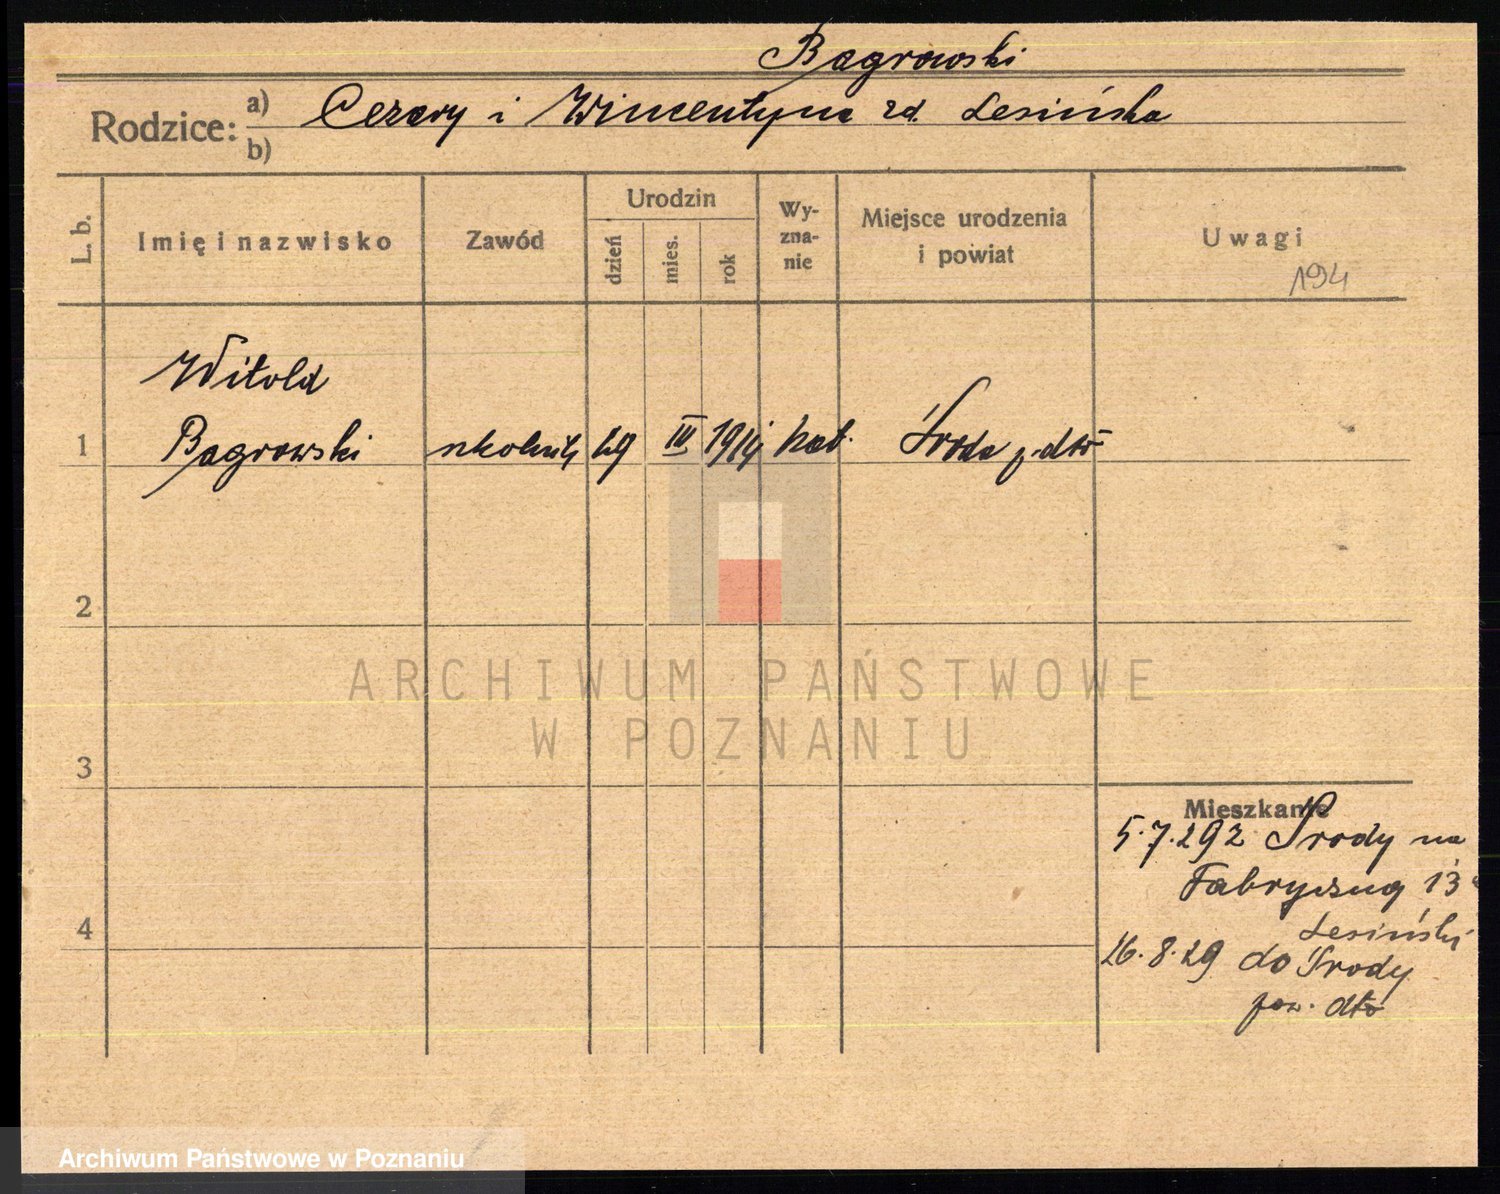 Bagrowski
Rodzice: a) Cezary i Wincentyna zd. Lesińska
b)
L. b.
Imię i nazwisko
Zawód
Urodzin
dzień
mies.
rok
Wy-
zna-
nie
Miejsce urodzenia
i powiat
Uwagi
194
Witold
1 Bagrowski szkolnik 29 IV 1914 kat. Środa p. dto
2
ARCHIWUM PAŃSTWOWE
W POZNANIU
3
Mieszkanie
5.7.29 z Środy na
Fabryczną 13
Lesiński
4
26.8.29 do Środy
pow. dto
Archiwum Państwowe w Poznaniu